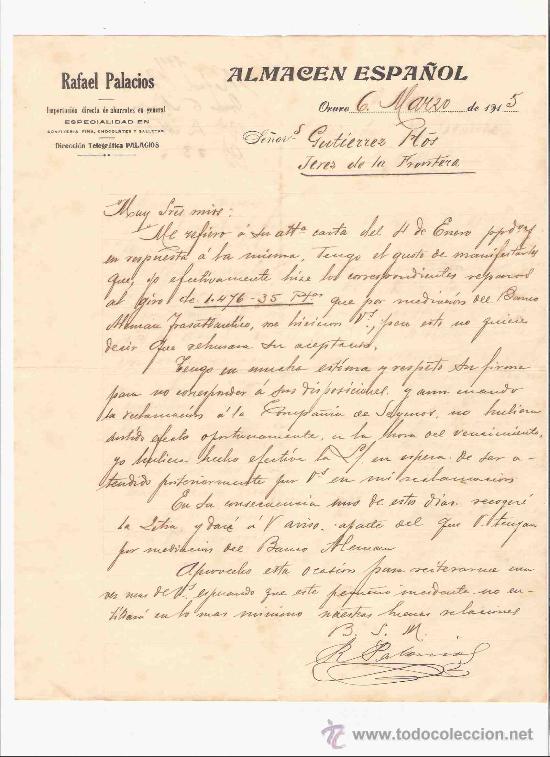 Rafael Palacios
Importación directa de abarrotes en general
ESPECIALIDAD EN
CONFITERIA FINA, CHOCOLATES Y GALLETAS
Dirección Telegráfica PALACIOS
ALMACEN ESPAÑOL
Oruro 6 Marzo de 1915
Señores Gutiérrez Hos
Jerez de la Frontera
Muy Sres mios:
Me refiero á su atta carta del 4 de Enero ppdo y
en respuesta á la misma, tengo el gusto de manifestarles
que, yo efectivamente hize los correspondientes reparos
al giro de 1.476-35 Ptas que por mediación del Banco
Aleman Trasatlantico, me hicieron Vs, pero esto no quiere
decir que rehusara su aceptacion.
Tengo en mucha estima y respeto su firma
para no corresponder á sus disposiciones y aun cuando
la reclamación á la Compañia de Seguros, no hubiera
surtido efecto oportunamente, a la hora del vencimiento,
yo hubiera hecho efectiva la L/ en espera de ser a-
tendido posteriormente por Vs en mi reclamacion
En su consecuencia uno de estos dias recogeré
la Letra, y daré á V aviso aparte del que V. tengan
por mediacion del Banco Aleman
Aprovecho esta ocasión para reiterarme una
vez mas de Vs. esperando que este pequeño incidente no en-
tibiará en lo mas minimo nuestras buenas relaciones
B. S. M.
R Palacios
todocoleccion
www.todocoleccion.net